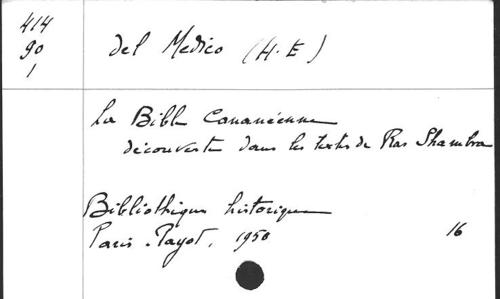 414
90
1
del Medico (H.E)
La Bible Cananéenne
découverte dans les textes de Ras Shamra
Bibliothèque historique
Paris. Payot, 1950
16